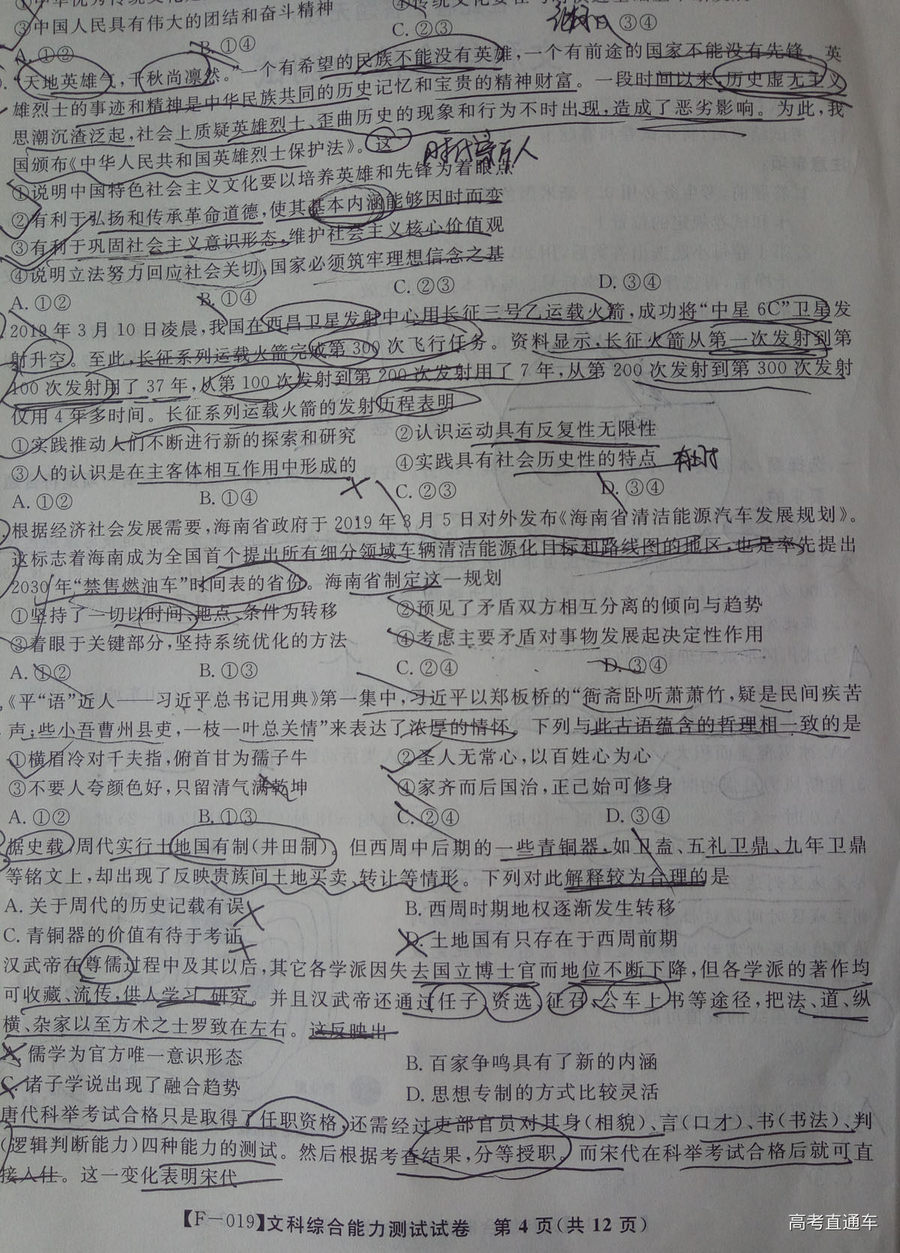 ③中国人民具有伟大的团结和奋斗精神
A. ①②
B. ①④
C. ②③
③④
“天地英雄气,千秋尚凛然。”一个有希望的民族不能没有英雄,一个有前途的国家不能没有先锋。英
雄烈士的事迹和精神是中华民族共同的历史记忆和宝贵的精神财富。一段时间以来,历史虚无主义
思潮沉渣泛起,社会上质疑英雄烈士、歪曲历史的现象和行为不时出现,造成了恶劣影响。为此,我
国颁布《中华人民共和国英雄烈士保护法》。这
①说明中国特色社会主义文化要以培养英雄和先锋为着眼点
②有利于弘扬和传承革命道德,使其基本内涵能够因时而变
③有利于巩固社会主义意识形态,维护社会主义核心价值观
④说明立法努力回应社会关切,国家必须筑牢理想信念之基
A. ①②
B. ①④
C. ②③
D. ③④
2019年3月10日凌晨,我国在西昌卫星发射中心用长征三号乙运载火箭,成功将“中星6C”卫星发
射升空。至此,长征系列运载火箭完成第300次飞行任务。资料显示,长征火箭从第一次发射到第
100次发射用了37年,从第100次发射到第200次发射用了7年,从第200次发射到第300次发射
仅用4年多时间。长征系列运载火箭的发射历程表明
①实践推动人们不断进行新的探索和研究
②认识运动具有反复性无限性
③人的认识是在主客体相互作用中形成的
④实践具有社会历史性的特点
A. ①②
B. ①④
C. ②③
D. ③④
根据经济社会发展需要,海南省政府于2019年3月5日对外发布《海南省清洁能源汽车发展规划》。
这标志着海南成为全国首个提出所有细分领域车辆清洁能源化目标和路线图的地区,也是率先提出
2030年“禁售燃油车”时间表的省份。海南省制定这一规划
①坚持了一切以时间、地点、条件为转移
②预见了矛盾双方相互分离的倾向与趋势
③着眼于关键部分,坚持系统优化的方法
④考虑主要矛盾对事物发展起决定性作用
A. ①②
B. ①③
C. ②④
D. ③④
《平“语”近人——习近平总书记用典》第一集中,习近平以郑板桥的“衙斋卧听萧萧竹,疑是民间疾苦
声;些小吾曹州县吏,一枝一叶总关情”来表达了浓厚的情怀。下列与此古语蕴含的哲理相一致的是
①横眉冷对千夫指,俯首甘为孺子牛
②圣人无常心,以百姓心为心
③不要人夸颜色好,只留清气满乾坤
④家齐而后国治,正己始可修身
A. ①②
B. ①③
C. ②④
D. ③④
据史载,周代实行土地国有制(井田制)。但西周中后期的一些青铜器,如卫盉、五礼卫鼎、九年卫鼎
等铭文上,却出现了反映贵族间土地买卖、转让等情形。下列对此解释较为合理的是
A. 关于周代的历史记载有误
B. 西周时期地权逐渐发生转移
C. 青铜器的价值有待于考证
D. 土地国有只存在于西周前期
汉武帝在尊儒过程中及其以后,其它各学派因失去国立博士官而地位不断下降,但各学派的著作均
可收藏、流传,供人学习、研究。并且汉武帝还通过任子、资选、征召、公车上书等途径,把法、道、纵
横、杂家以至方术之士罗致在左右。这反映出
A. 儒学为官方唯一意识形态
B. 百家争鸣具有了新的内涵
C. 诸子学说出现了融合趋势
D. 思想专制的方式比较灵活
唐代科举考试合格只是取得了任职资格,还需经过吏部官员对其身(相貌)、言(口才)、书(书法)、判
(逻辑判断能力)四种能力的测试。然后根据考查结果,分等授职。而宋代在科举考试合格后就可直
接入仕。这一变化表明宋代
【F-019】文科综合能力测试试卷 第4页(共12页)
高考直通车